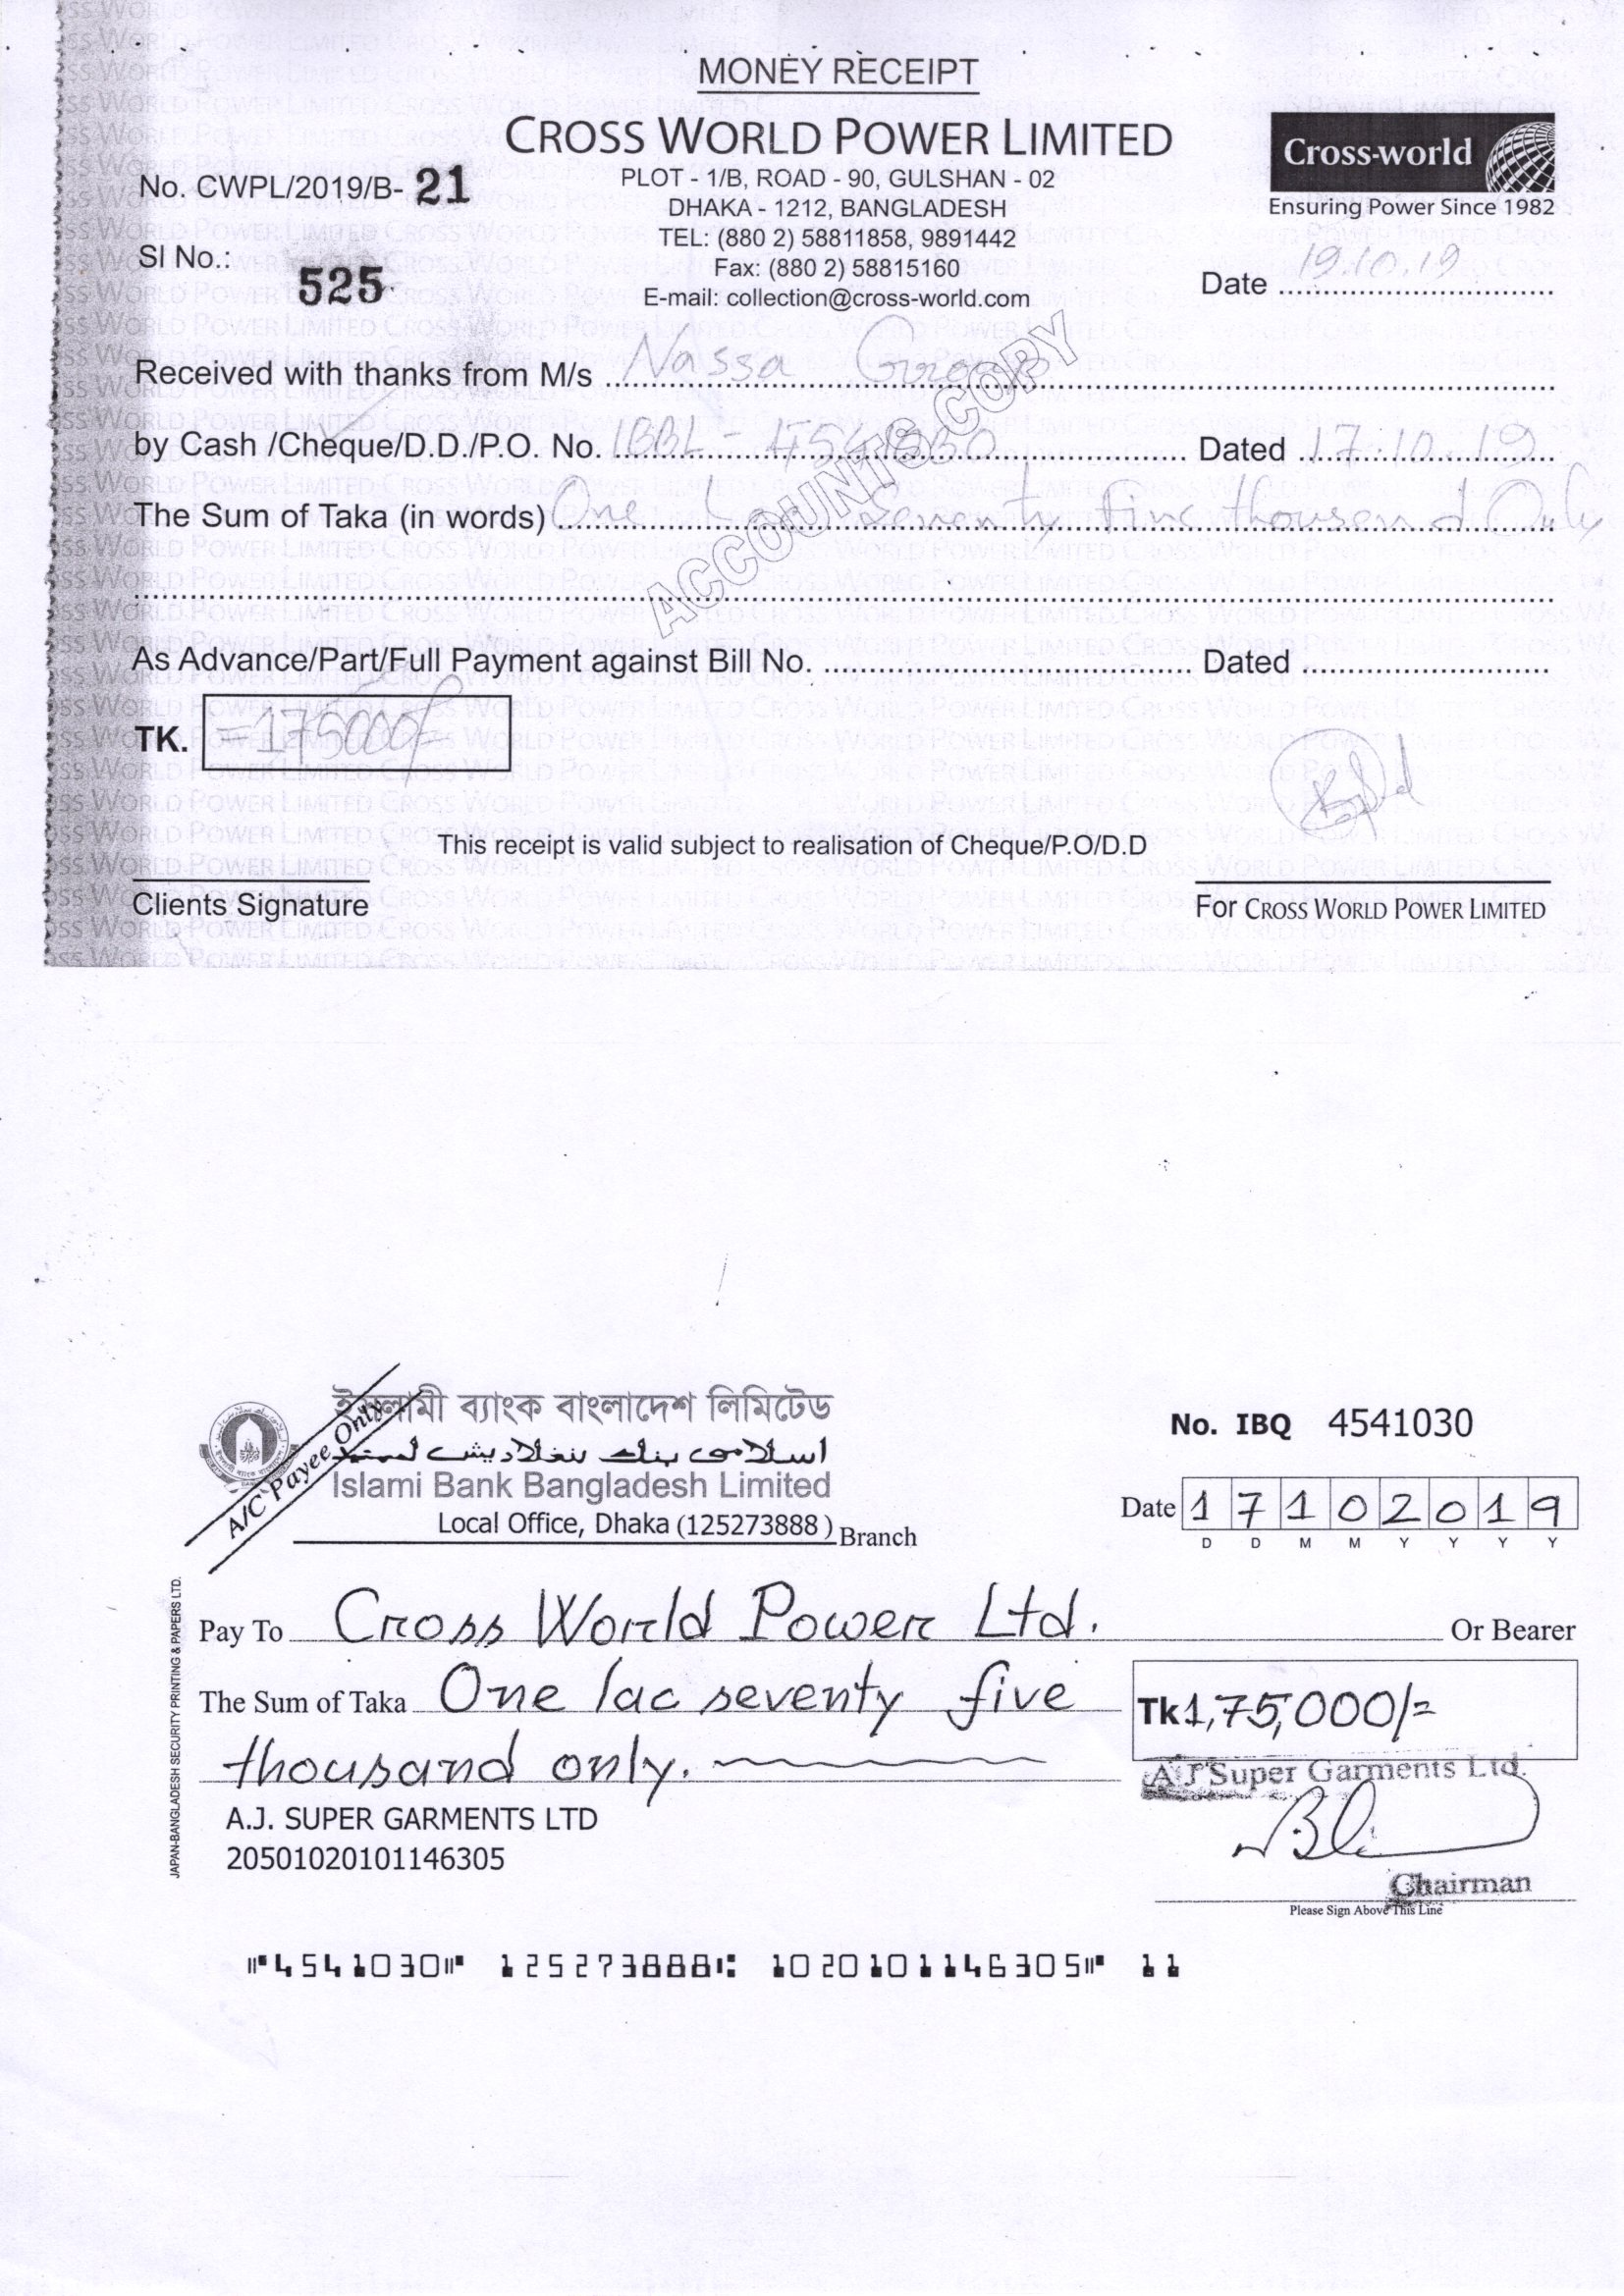 MONEY RECEIPT
CROSS WORLD POWER LIMITED
PLOT - 1/B, ROAD - 90, GULSHAN - 02
DHAKA - 1212, BANGLADESH
TEL: (880 2) 58811858, 9891442
Fax: (880 2) 58815160
E-mail: collection@cross-world.com
Cross-world
Ensuring Power Since 1982
No. CWPL/2019/B- 21
Sl No.. 525
Date 19.10.19
Received with thanks from M/s Nassa Group
by Cash /Cheque/D.D /P.O. No. IBBL - Dated 17.10.19
The Sum of Taka (in words) One Lac Seventy five thousand Only
ACCOUNTS COPY
As Advance/Part/Full Payment against Bill No. Dated
TK. =175000/
This receipt is valid subject to realisation of Cheque/P.O/D.D
Clients Signature
For CROSS WORLD POWER LIMITED
A/C Payee Only
ইসলামী ব্যাংক বাংলাদেশ লিমিটেড
اسلامى بنك بنغلاديش لميتد
Islami Bank Bangladesh Limited
Local Office, Dhaka (125273888) Branch
No. IBQ 4541030
Date 17102019
D D M M Y Y Y Y
Pay To Cross World Power Ltd. Or Bearer
The Sum of Taka One lac seventy five
thousand only.
Tk 1,75,000/=
A.J. SUPER GARMENTS LTD
20501020101146305
A J Super Garments Ltd.
Chairman
Please Sign Above This Line
JAPAN-BANGLADESH SECURITY PRINTING & PAPERS LTD.
⑈4541030⑈ 125273888⑆ 1020101146305⑈ 11